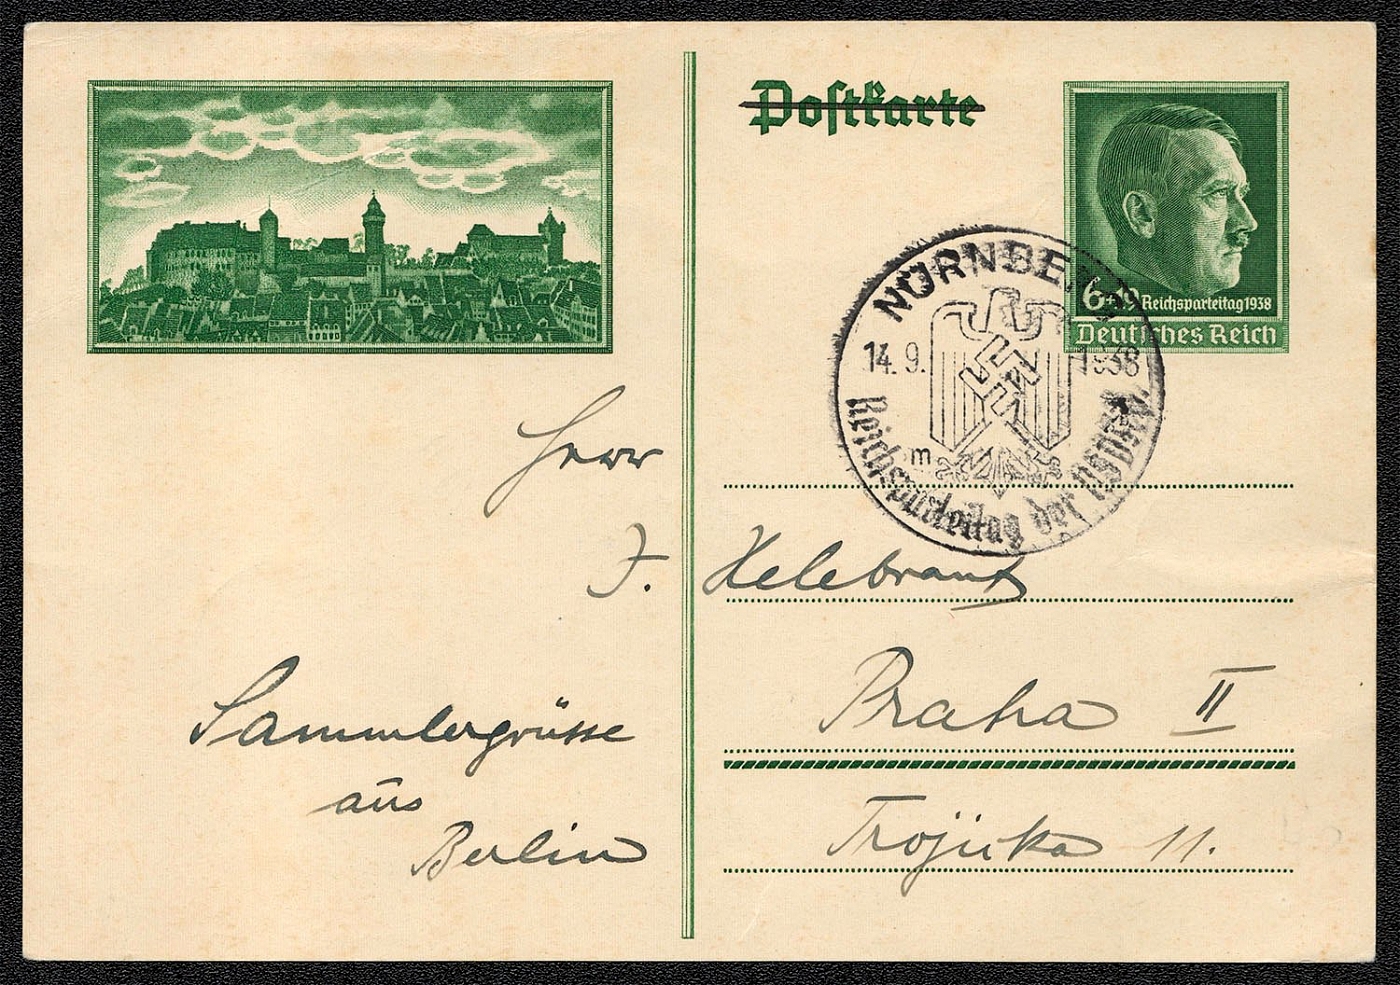 Postkarte
6+19 Reichsparteitag 1938
Deutsches Reich
NÜRNBERG
14.9. 1938
m
Reichsparteitag der NSDAP
Herr
J. Helebrant
Praha II
Trojička 11.
Sammlergrüsse
aus
Berlin